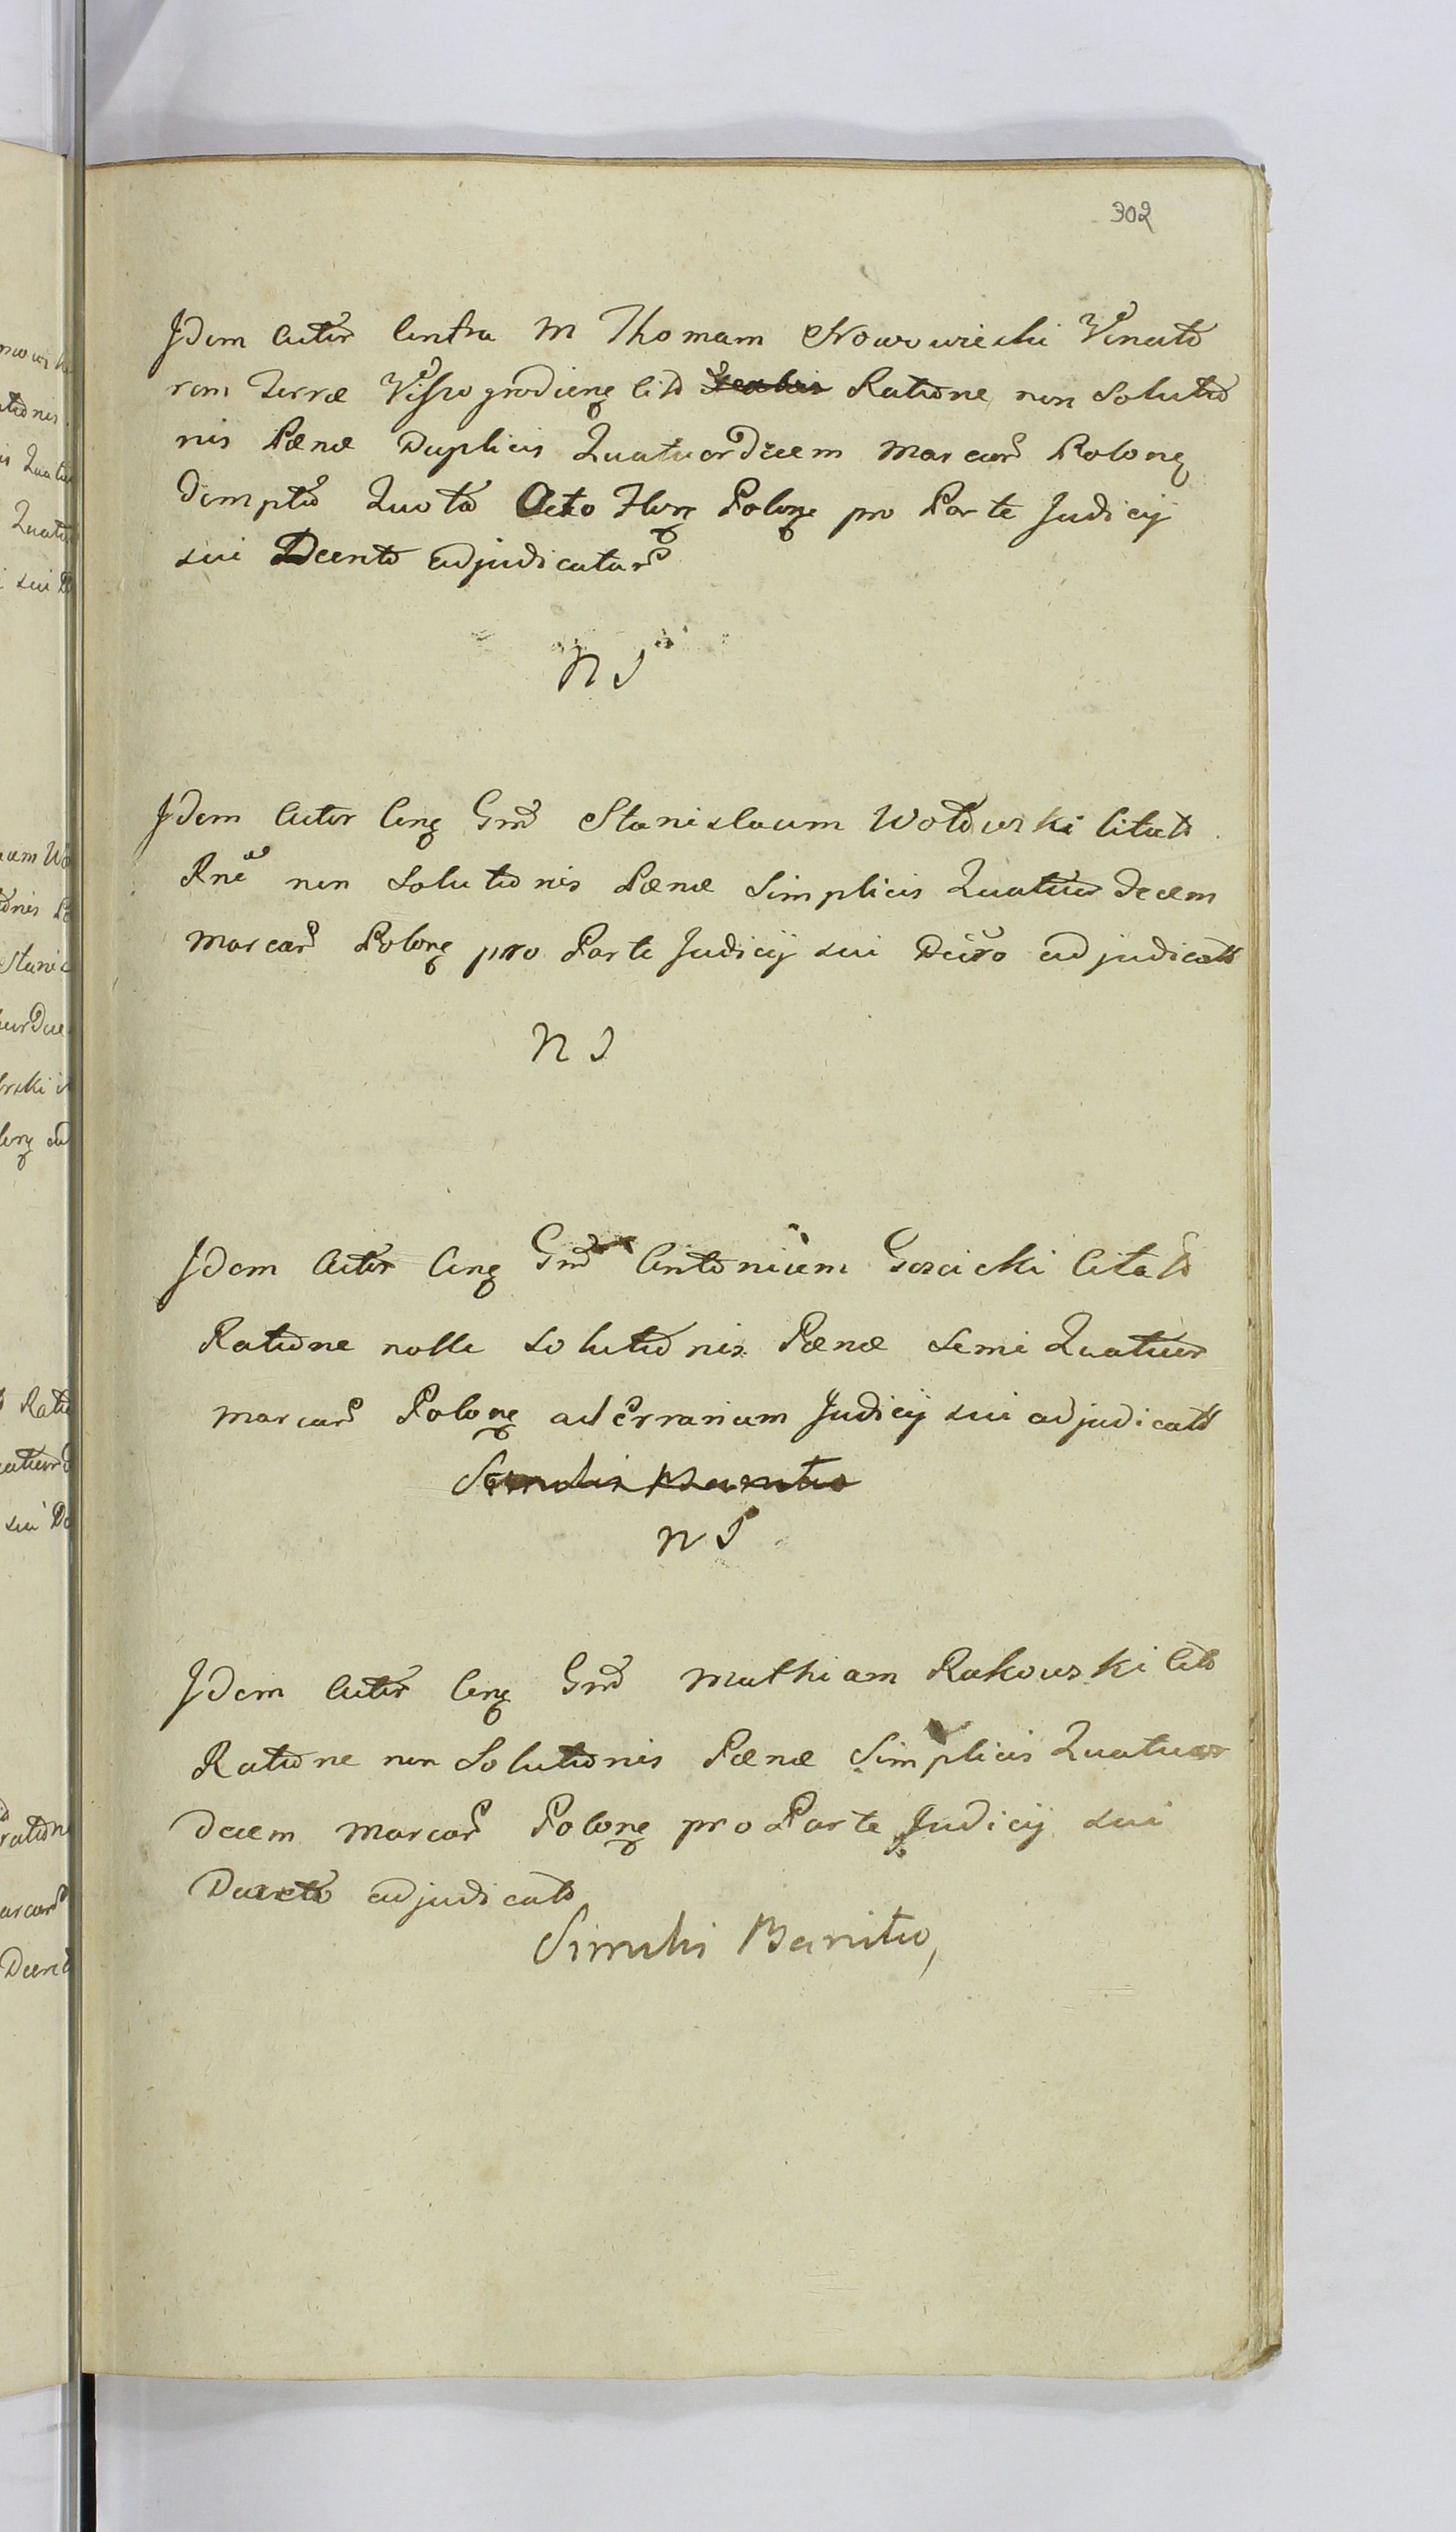 302
Idem Actor Contra M Thomam Nowowieski Venato
rem Terræ Viszogrodiens Citto Ratione non Solutio
nis Pænæ Duplicis Quatuordecem Marcar Polon
Dempta Quota Octo Flor Polon pro Parte Judicij
sui Decreto adjudicatar
NS
Idem Actor Con Gnd Stanislaum Wołowski Citato
Rne non Solutionis Pænæ Simplicis Quatuor decem
Marcar Polon pro Parte Judicij sui Decreto adjudicato
NS
Idem Actor Con Gnd Antonium Gozicki Citato
Ratione nolle Solutionis Pænæ semi Quatuor
Marcar Polon ad Errarium Judicij sui adjudicato
Similis Banitio
NS
Idem Actor Con Gnd Mathiam Rakowski Citto
Ratione non Solutionis Pænæ Simplicis Quatuor
decem Marcar Polon pro Parte Judicij sui
Decreto adjudicato
Similis Banitio,